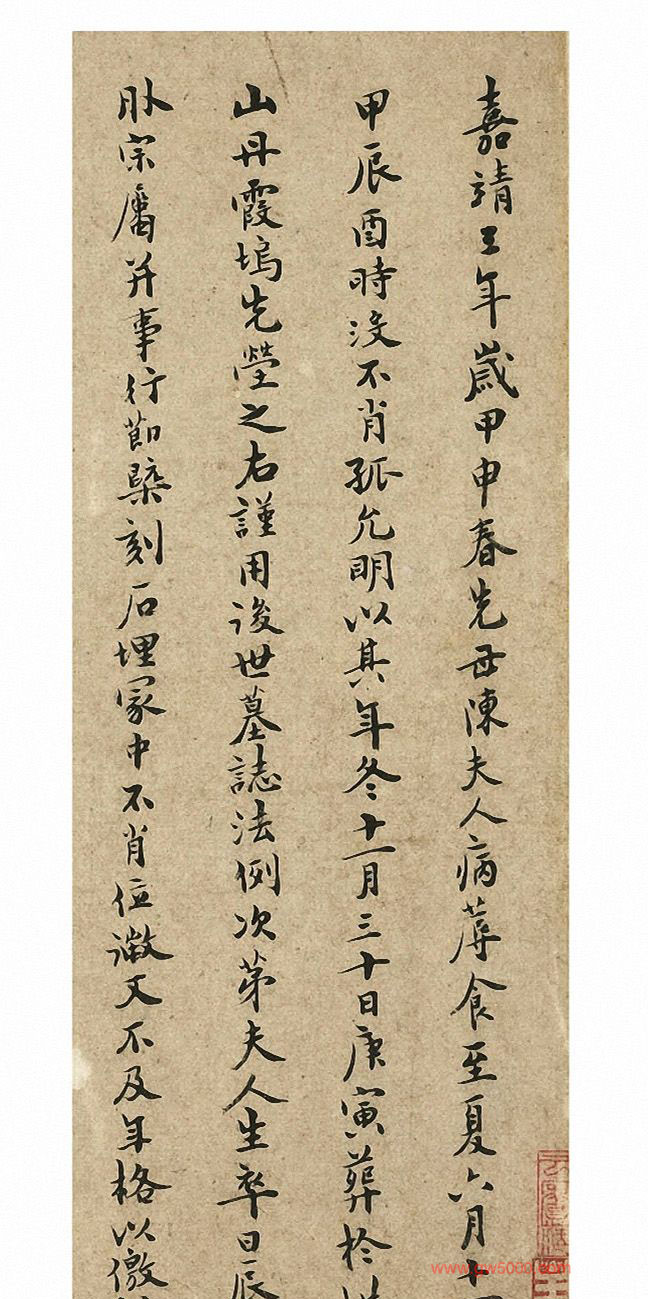 嘉靖三年歲甲申春先母陳夫人病蓐食至夏六月十
甲辰酉時沒不肖孤允明以其年冬十一月三十日庚寅葬於
山丹霞塢先塋之右謹用後世墓誌法例次苐夫人生卒日辰
宗屬并事行節槩刻石埋冢中不肖位微文不及年格以徼